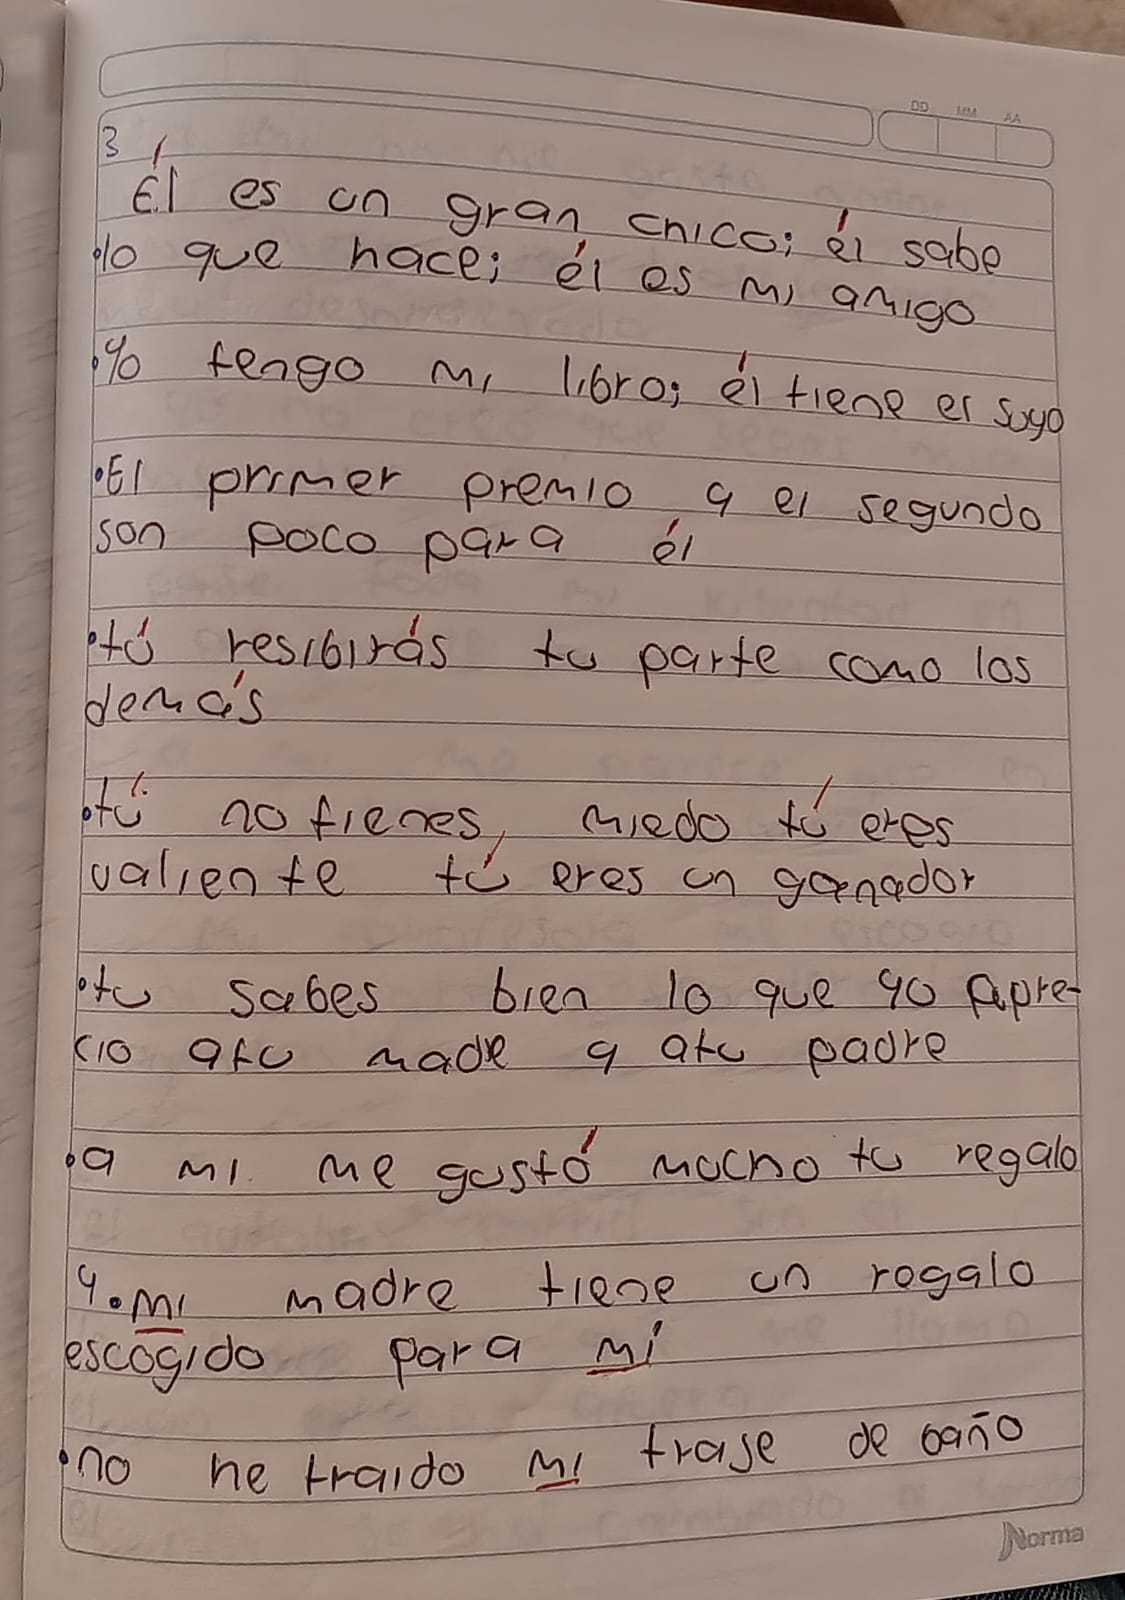 DD MM AA
3
Él es un gran chico; él sabe
lo que hace; él es mi amigo
•Yo tengo mi libro; él tiene el suyo
•El primer premio y el segundo
son poco para él
•tú resibirás tu parte como los
demás
•tú no tienes, miedo tú eres
valiente tú eres un ganador
•tu sabes bien lo que yo apre-
cio atu made y atu padre
•a mi me gustó mucho tu regalo
4.mi madre tiene un regalo
escogido para mí
•no he traido mi traje de baño
Norma